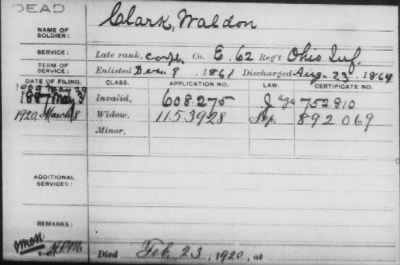 DEAD
NAME OF SOLDIER: Clark, Waldon
SERVICE: Late rank, Corpl Co. E. 62 Reg't Ohio Inf.
TERM OF SERVICE: Enlisted Decr. 9, 1861 Discharged Aug. 23, 186
DATE OF FILING. CLASS. APPLICATION NO. LAW. CERTIFICATE NO.
1887 May Invalid, 608.275 752810
1920 March 8 Widow, 1153928 Sep. 892069
Minor,
ADDITIONAL SERVICES:
REMARKS:
Died Feb. 23, 1920, at